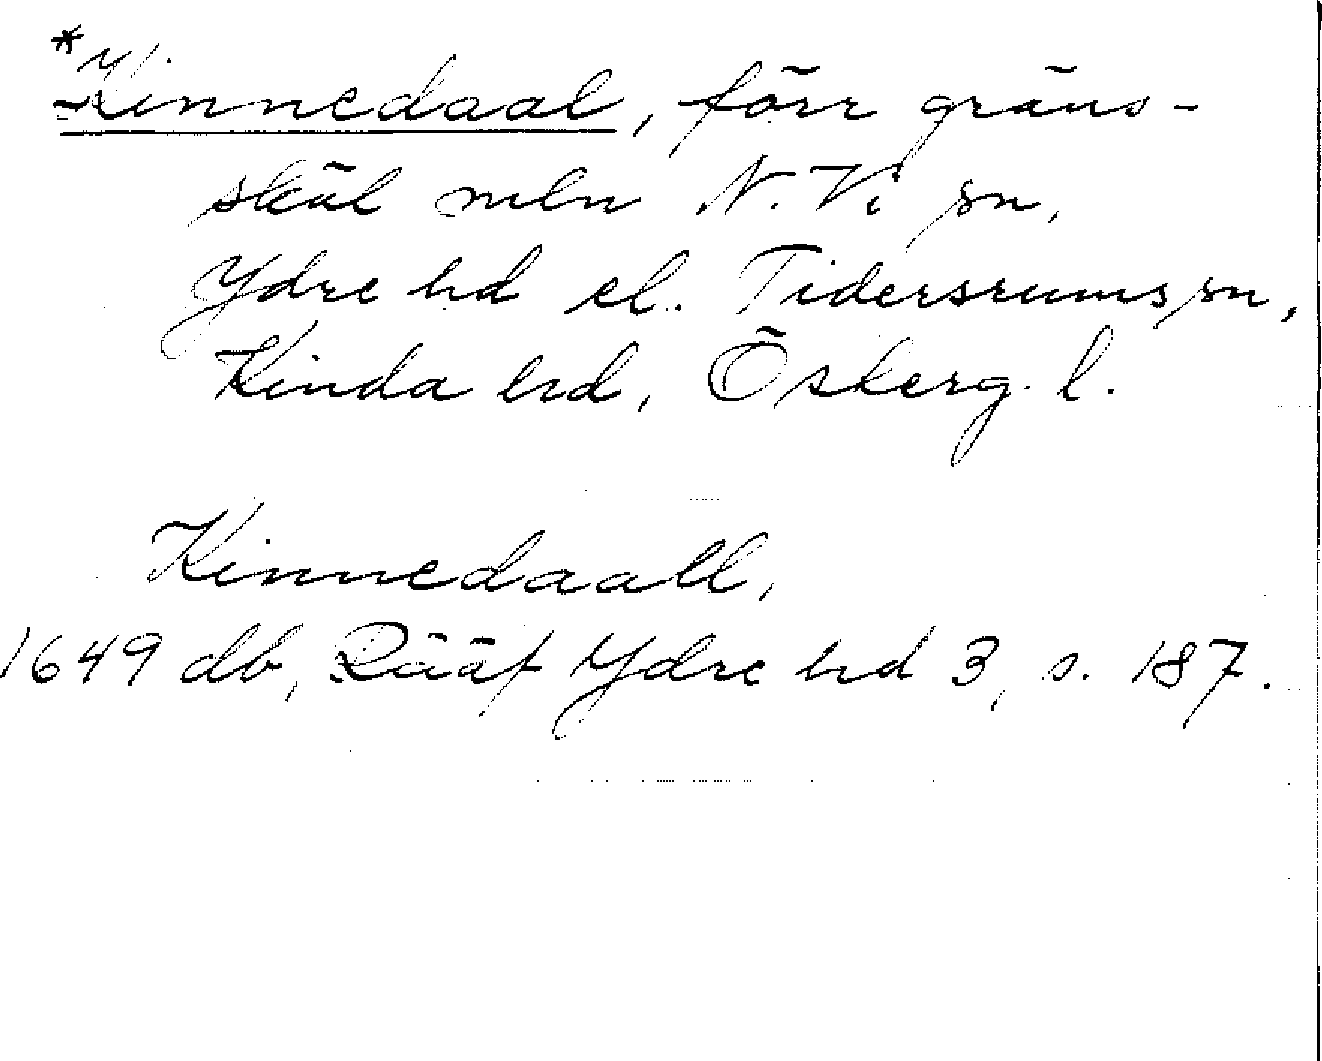 *Kinnedaal, förr gräns-
skäl mln N. Vi sn,
Ydre hd el. Tidersrums sn,
Kinda hd, Österg. l.
Kinnedaall,
1649 db, Rääf Ydre hd 3, s. 187.